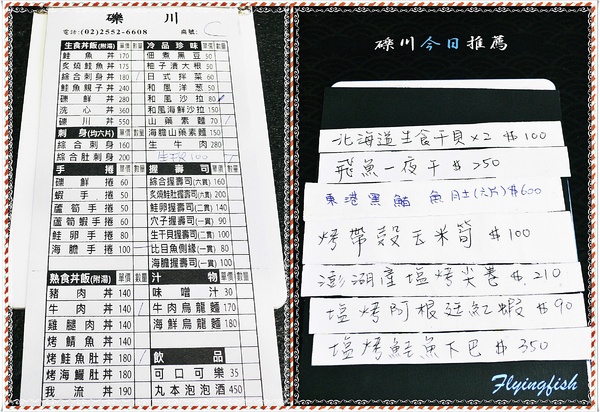 礫川
電話:(02)2552-6608 桌號:
生食丼飯(附湯) 單價 數量
鮭魚丼 170
炙燒鮭魚丼 175
綜合刺身丼 180
鮭魚親子丼 240
礫鮮丼 280
洗心丼 360
礫川丼 550
刺身(均六片) 單價 數量
綜合刺身 160
綜合肚刺身 200
手捲 單價 數量
礫鮮捲 60
蝦手捲 50
蘆筍手捲 50
蘆筍蝦手捲 60
鮭卵手捲 80
海膽手捲 100
熟食丼飯(附湯) 單價 數量
豬肉丼 140
牛肉丼 140
雞腿肉丼 140
烤鯖魚丼 140
烤鮭魚肚丼 180
烤海鱺肚丼 180
我流丼 190
冷品珍味 單價 數量
佃煮黑豆 50
柚子漬大根 50
日式拌菜 60
和風洋葱 50
和風沙拉 80
和風海鮮沙拉 150
山藥素麵 70
海膽山藥素麵 150
生牛肉 280
握壽司 單價 數量
綜合握壽司(六貫) 160
炙燒鮭肚握壽司(六貫) 200
鮭卵握壽司(二貫) 140
穴子握壽司(一貫) 90
生干貝握壽司(二貫) 140
比目魚側緣(一貫) 80
海膽握壽司(一貫) 100
汁物 單價 數量
味噌汁 30
牛肉烏龍麵 170
海鮮烏龍麵 180
飲品
可口可樂 35
丸本泡泡酒 450
礫川今日推薦
北海道生食干貝x2 $100
飛魚一夜干 $250
東港黑鮪魚肚(六片)$600
烤帶殼玉米筍 $100
澎湖產塩烤尖卷 $210
塩烤阿根廷紅蝦 $90
塩烤鮭魚下巴 $350
Flyingfish